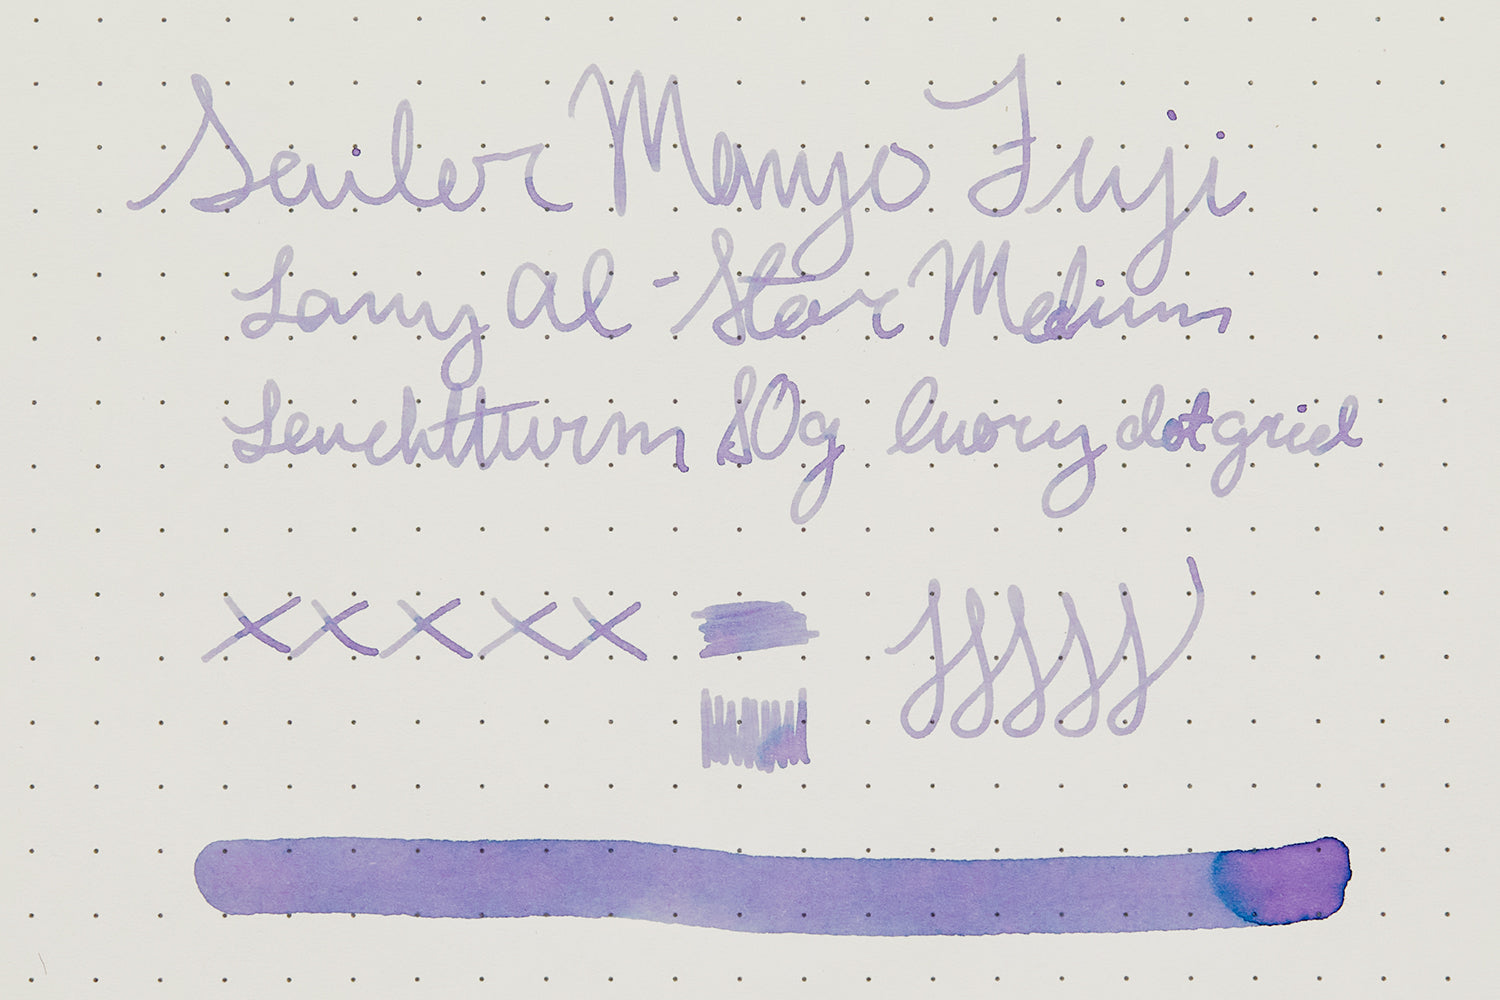 Sailor Manyo Fuji
Lamy Al-Star Medium
Leuchtturm 80g Ivory dot grid
xxxxx